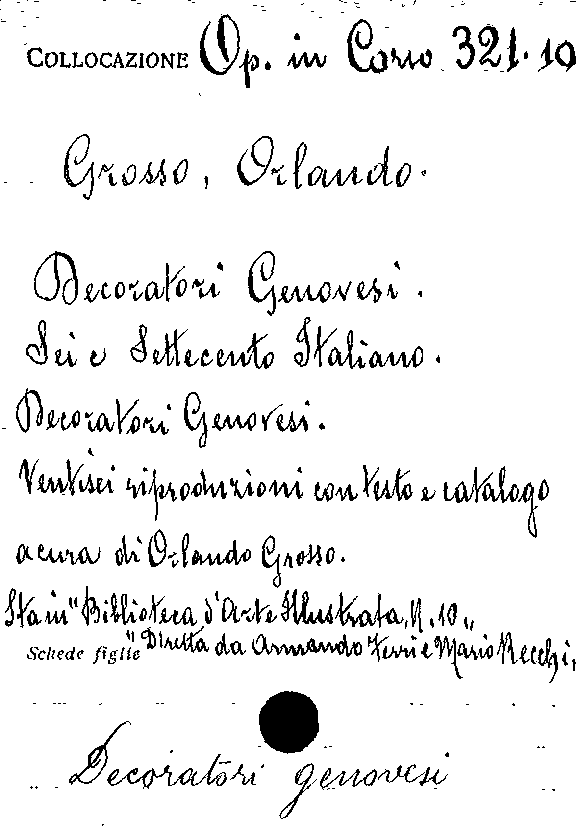 COLLOCAZIONE Op. in Corso 321.10
Grosso, Orlando.
Decoratori Genovesi.
Sei e Settecento Italiano.
Decoratori Genovesi.
Ventisei riproduzioni con testo e catalogo
a cura di Orlando Grosso.
Sta in "Biblioteca d'Arte Illustrata, N. 10"
Schede figlie "Diretta da Armando Ferri e Mario Recchi,
Decoratori genovesi